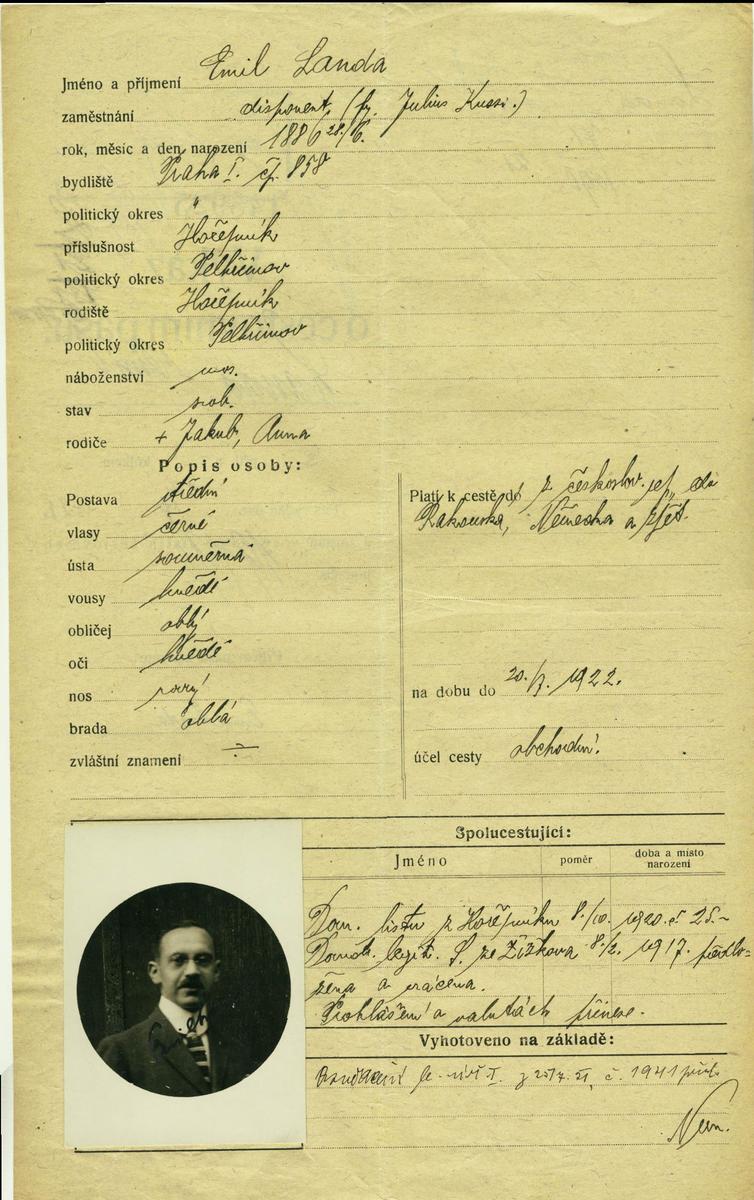 Jméno a příjmení Emil Landa
zaměstnání disponent, (fy. Julius )
rok, měsíc a den narození 1886 28/6.
bydliště Praha I. čp. 858
politický okres "
příslušnost Hořepník
politický okres Pelhřimov
rodiště Hořepník
politický okres Pelhřimov
náboženství mos.
stav svob.
rodiče + Jakub, Anna
Popis osoby:
Postava střední
vlasy černé
ústa souměrná
vousy hnědé
obličej oblý
oči hnědé
nos rovný
brada oblá
zvláštní znamení ÷
Platí k cestě do z českoslov. rep. do
Rakouska, Německa a zpět.
na dobu do 20./7. 1922.
účel cesty obchodní.
Spolucestující:
Jméno poměr doba a místo narození
Dom. listu z Hořepníku 8./10. 1920. č. 25.-
Domov. legit. ze Žižkova 8./2. 1917. předlo-
žena a vrácena.
Prohlášení o valutách přinese.
Vyhotoveno na základě:
č. 1941